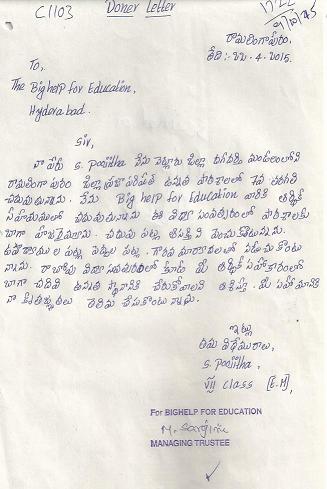 C1103 Doner Letter
రామలింగాపురం,
తేది:- 22.4.2015.
To,
The Bighelp for Education,
Hyderabad.
Sir,
నా పేరు S. Pavitha నేను నెల్లూరు జిల్లా మండలంలోని
రామలింగాపురం జిల్లా ప్రజా పరిషత్ ఉన్నత పాఠశాలలో 7వ తరగతి
చదువుతున్నాను. నేను Big help for Education వారికి ఆర్థిక
సహాయములో చదువుతున్నాను ఈ విద్యా సంవత్సరంలో పాఠశాలకు
బాగా చదువు పట్ల ఆసక్తిని పెంచుకోడమైనది.
ఉపాధ్యాయుల పట్ల, పెద్దల పట్ల, గౌరవ మర్యాదలతో నడుచుకొంటు
న్నాను. రాబోవు విద్యా సంవత్సరంలో కూడా మీ ఆర్థిక సహాకారంతో
బాగా చదివి ఉన్నత స్థానానికి చేరుకోవాలని ఆశిస్తూ మీ సహాయానికి
నా కృతజ్ఞతలు తెలియ చేసుకొంటున్నాను.
ఇట్లు
తమ విధేయురాలు,
S. Pavitha,
VII Class [E.M],
For BIGHELP FOR EDUCATION
MANAGING TRUSTEE